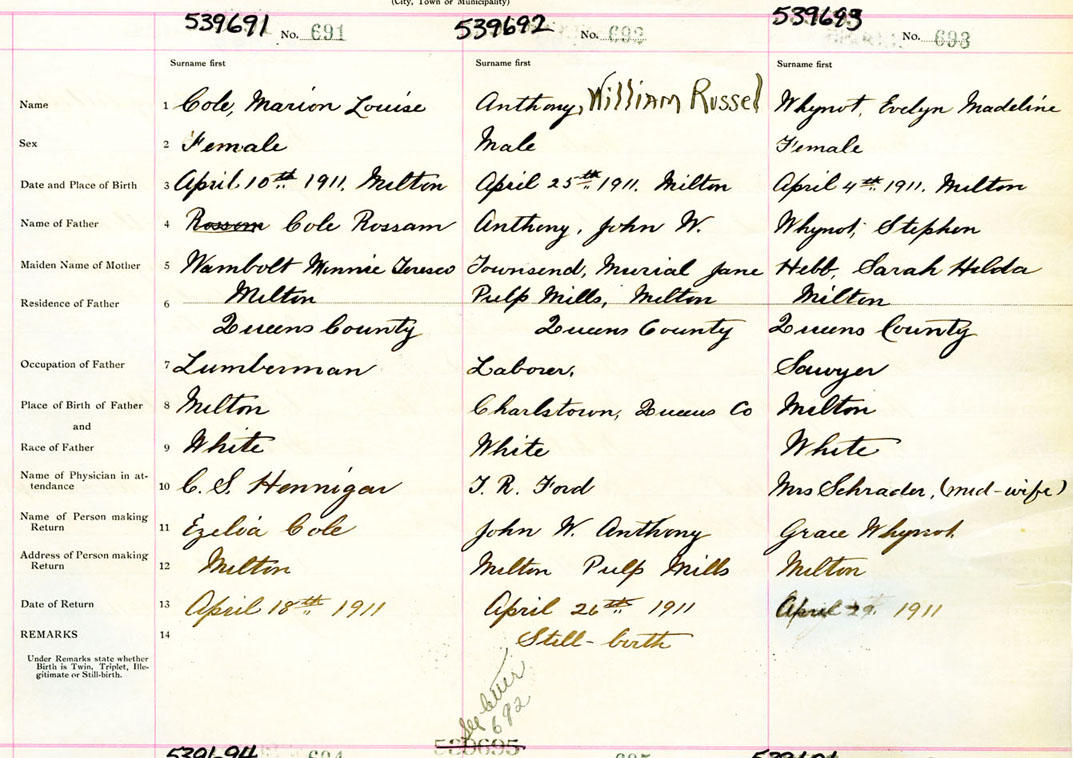 (City, Town or Municipality)
539691 No. 691 539692 No. 692 539693 No. 693
Surname first Surname first Surname first
Name 1 Cole, Marion Louise Anthony, William Russel Whynot, Evelyn Madeline
Sex 2 Female Male Female
Date and Place of Birth 3 April 10th 1911. Milton April 25th 1911. Milton April 4th 1911. Milton
Name of Father 4 Rossom Cole Rossam Anthony, John W. Whynot, Stephen
Maiden Name of Mother 5 Wambolt Minnie Teresco Townsend, Murial Jane Hebb, Sarah Hilda
Residence of Father 6 Milton Pulp Mills, Milton Milton
Queens County Queens County Queens County
Occupation of Father 7 Lumberman Laborer, Sawyer
Place of Birth of Father 8 Milton Charlstown, Queens Co Milton
and
Race of Father 9 White White White
Name of Physician in at-
tendance 10 C. S. Hennigar T. R. Ford Mrs Schrader, (mid-wife)
Name of Person making
Return 11 Ezelia Cole John W. Anthony Grace Whynot
Address of Person making
Return 12 Milton Milton Pulp Mills Milton
Date of Return 13 April 18th 1911 April 26th 1911 April 29. 1911
REMARKS 14 Still-birth
Under Remarks state whether
Birth is Twin, Triplet, Ille-
gitimate or Still-birth.
See letter
692
539694 694 539695 695